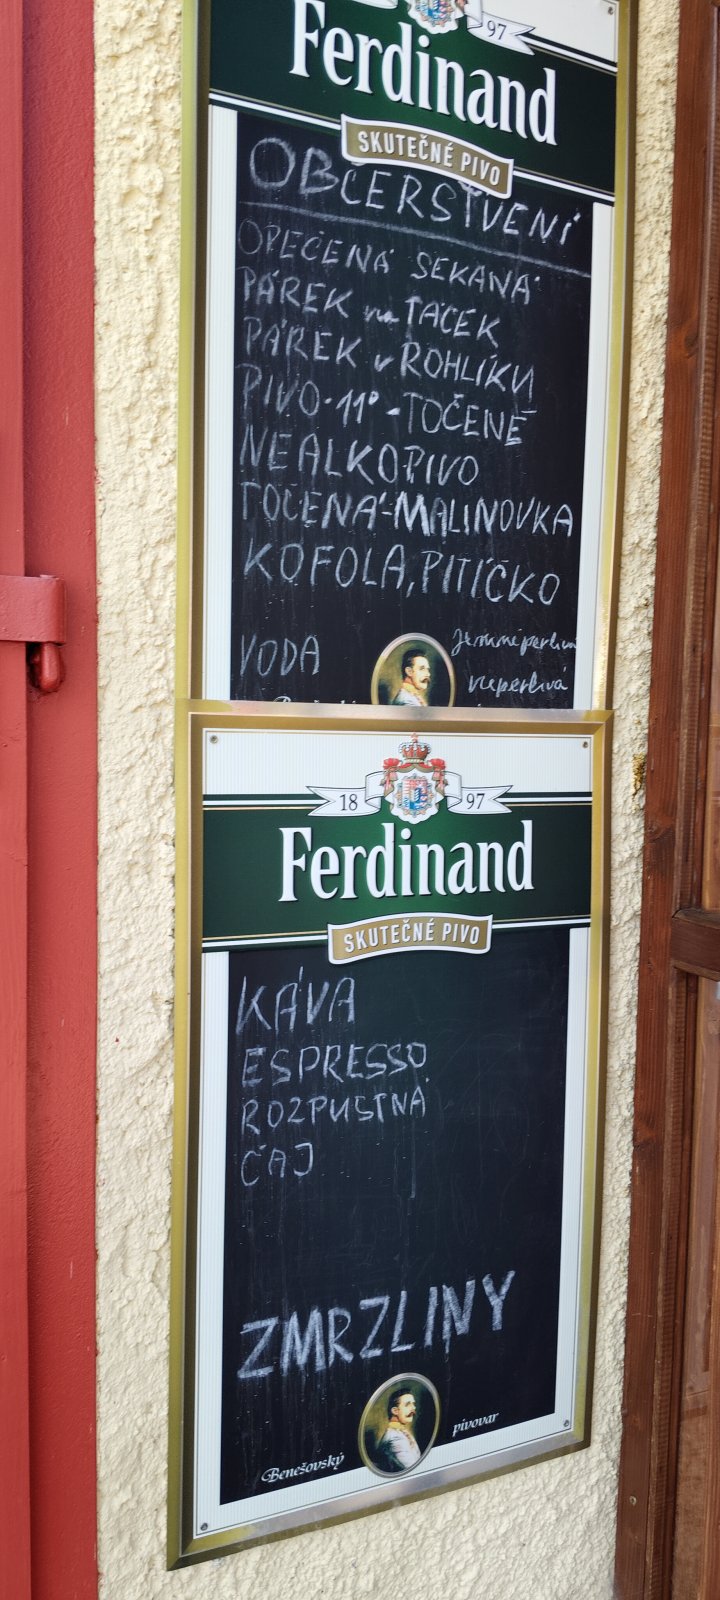 97
Ferdinand
SKUTEČNÉ PIVO
OBČERSTVENÍ
OPEČENÁ SEKANÁ
PÁREK na TÁCEK
PÁREK v ROHLÍKU
PIVO-11°-TOČENÉ
NEALKOPIVO
TOČENÁ-MALINOVKA
KOFOLA, PITÍČKO
VODA
Jemněperlivá
neperlivá
18 97
Ferdinand
SKUTEČNÉ PIVO
KÁVA
ESPRESSO
ROZPUSTNÁ
ČAJ
ZMRZLINY
Benešovský pivovar